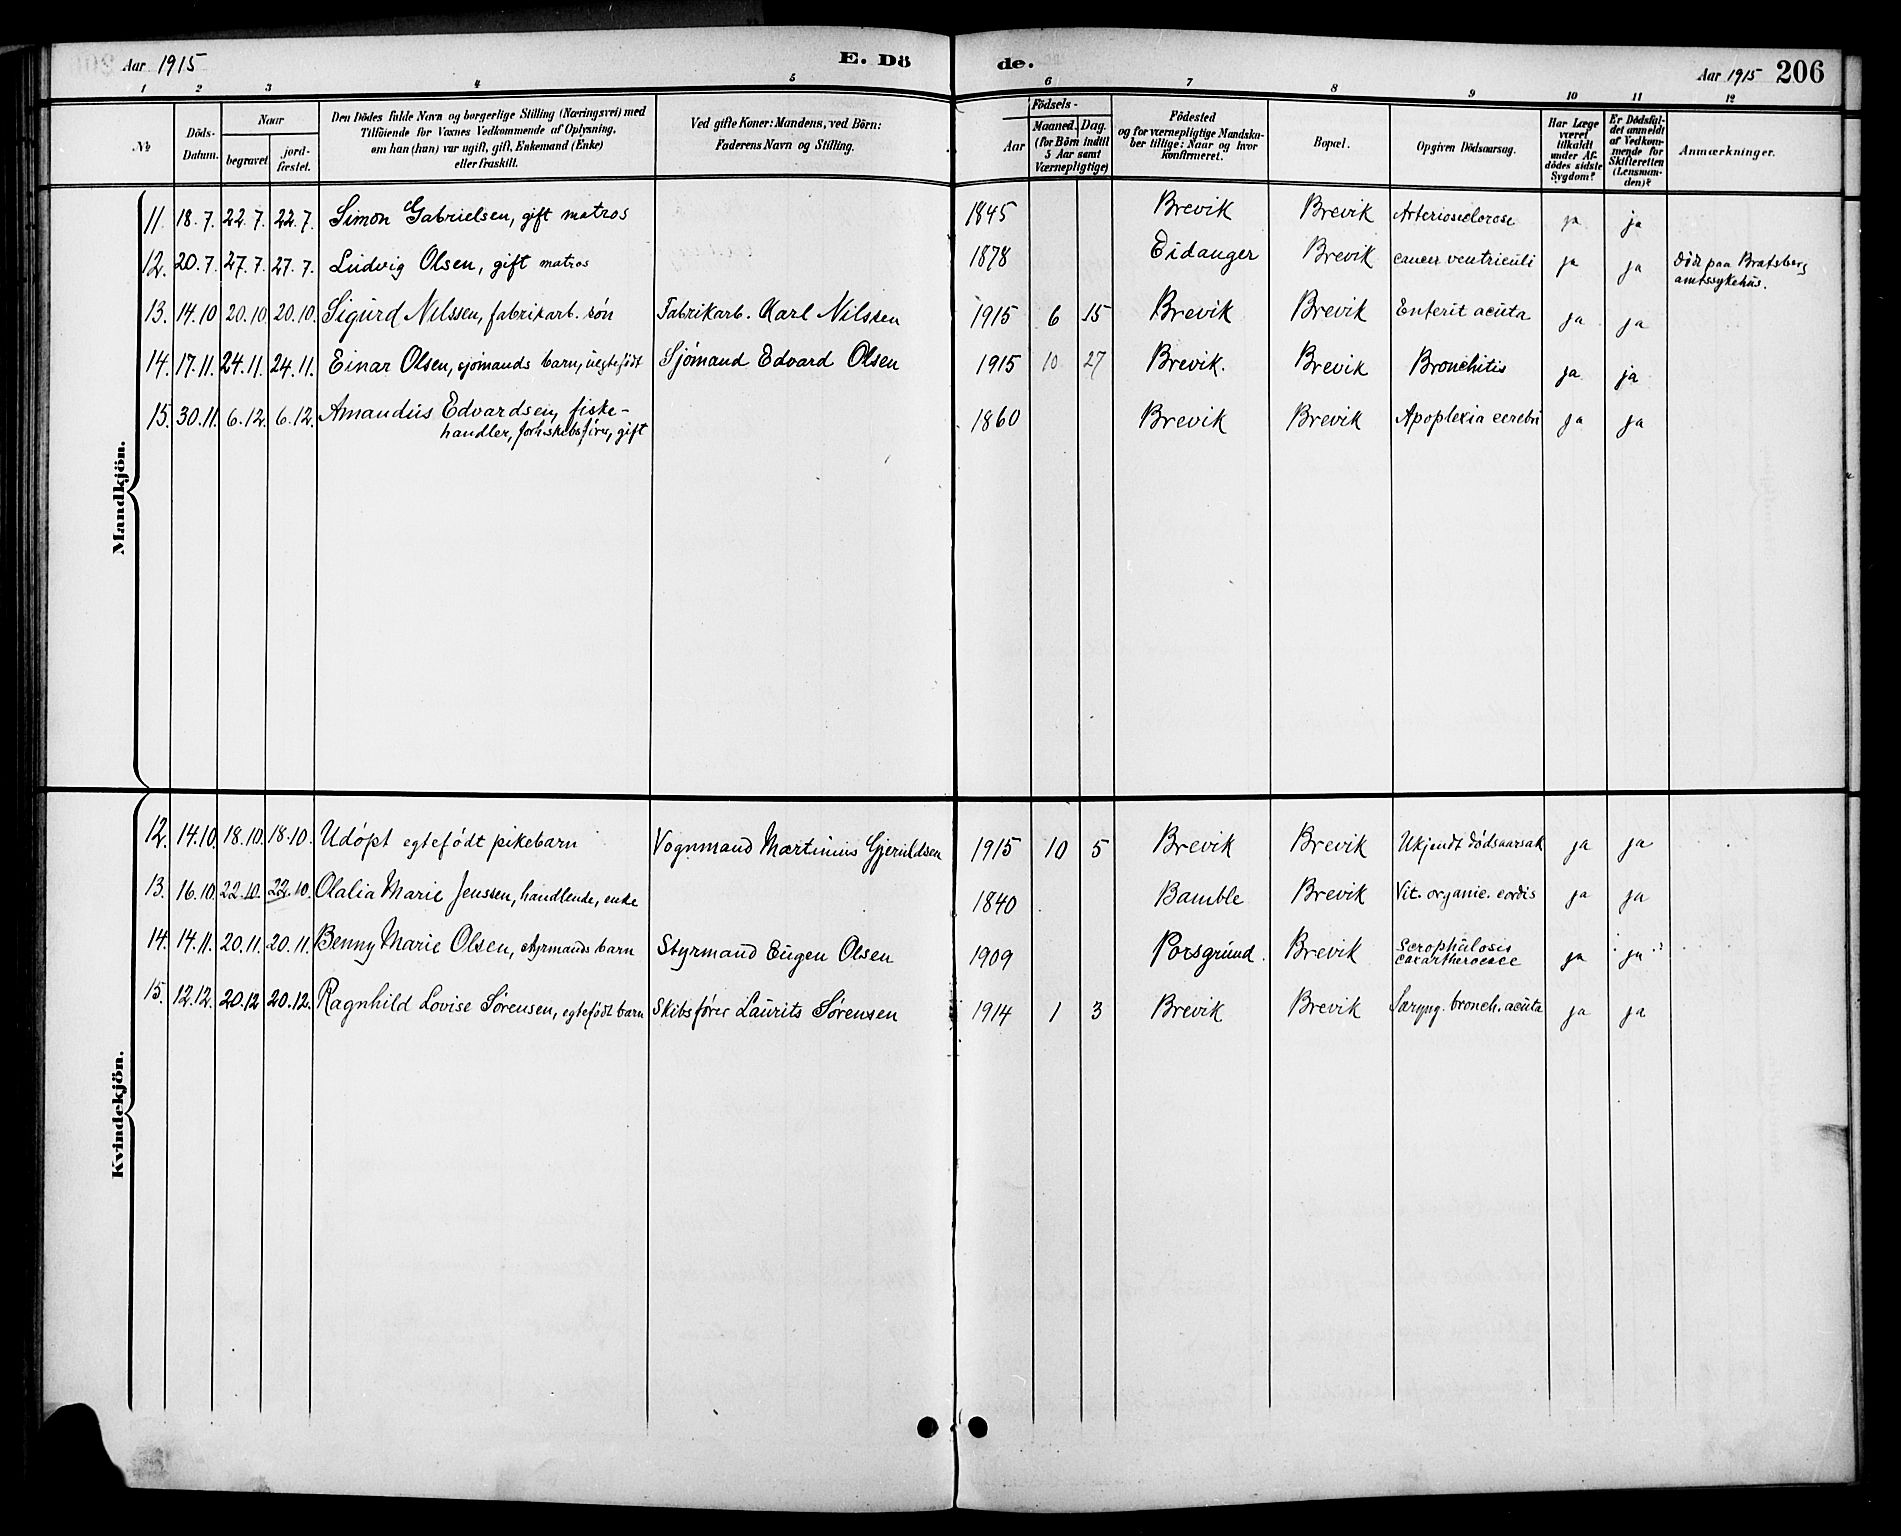 Aar 1915
E. Dö
de.
Aar 1915 206
1 2 3 4 5 6 7 8 9 10 11 12
No
Döds-Datum.
Naar
begravet.
jord-fæstet.
Den Dödes fulde Navn og borgerlige Stilling (Næringsvei) med
Tilföiende for Voxnes Vedkommende af Oplysning,
om han (hun) var ugift, gift, Enkemand (Enke)
eller fraskilt.
Ved gifte Koner: Mandens, ved Börn:
Faderens Navn og Stilling.
Födsels-
Aar
Maaned. Dag.
(for Börn indtil
5 Aar samt
Værnepligtige)
Födested
og for værnepligtige Mandska-
ber tillige: Naar og hvor
konfirmeret.
Bopæl.
Opgiven Dödsaarsag.
Har Læge
været
tilkaldt
under Af-
dödes sidste
Sygdom?
Er Dödsfal-
det anmeldt
af Vedkom-
mende for
Skifteretten
(Lensman-
den)?
Anmærkninger.
Mandkjön.
11. 18.7. 22.7. 22.7. Simon Gabrielsen, gift matros 1845 Brevik Brevik Arteriosclerose ja ja
12. 20.7. 27.7. 27.7. Ludvig Olsen, gift matros 1878 Eidanger Brevik cancer ventriculi ja ja Död paa Bratsberg
amtssykehus.
13. 14.10 20.10 20.10. Sigurd Nilssen, fabrikarb. søn Fabrikarb. Karl Nilssen 1915 6 15 Brevik Brevik Enterit acuta ja ja
14. 17.11. 24.11. 24.11. Einar Olsen, sjømands barn, uegtefödt Sjømand Edvard Olsen 1915 10 27 Brevik. Brevik Bronchitis ja ja
15. 30.11. 6.12. 6.12. Amandus Edvardsen, fiske-
handler, forh. skibsfører, gift 1860 Brevik Brevik Apoplexia cerebri ja ja
Kvindekjön.
12. 14.10. 18.10. 18.10. Udöpt egtefödt pikebarn Vognmand Martinius Gjeruldsen 1915 10 5 Brevik Brevik Ukjendt dödsaarsak ja ja
13. 16.10. 22.10. 22.10. Olalia Marie Jenssen, handlende, enke 1840 Bamble Brevik Vit. organic. cordis ja ja
14. 14.11. 20.11. 20.11. Benny Marie Olsen, styrmands barn Styrmand Eugen Olsen 1909 Porsgrund. Brevik Scrophulosis ja ja
15. 12.12. 20.12 20.12. Ragnhild Lovise Sørensen, egtefödt barn Skibsfører Laurits Sørensen 1914 1 3 Brevik Brevik Laryng. bronch. acuta ja ja